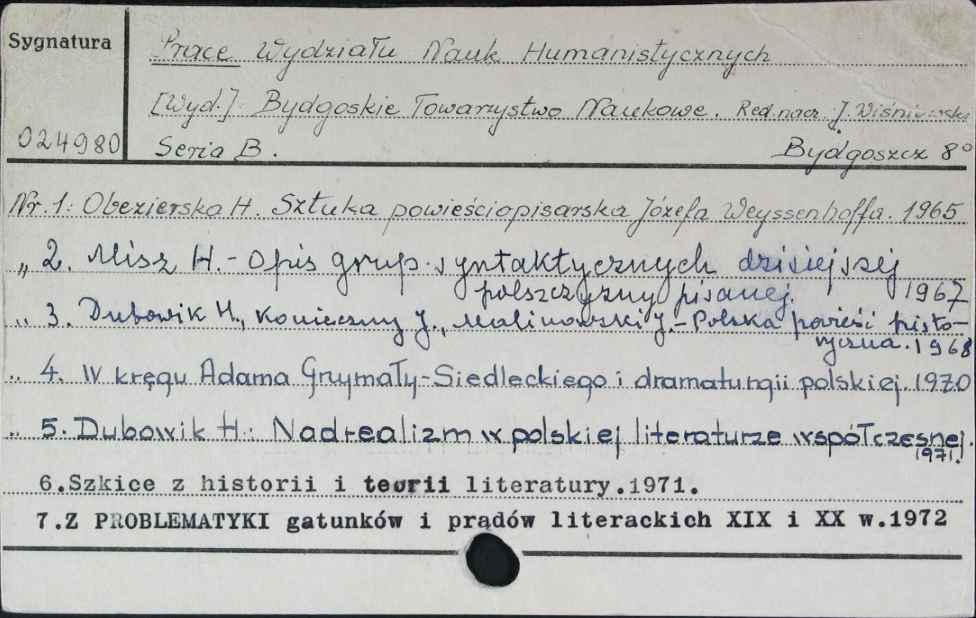 Sygnatura
Prace Wydziału Nauk Humanistycznych
[Wyd.] Bydgoskie Towarzystwo Naukowe. Red. nacz. J.
024980
Seria B. Bydgoszcz 8°
Nr. 1: Obezierska H. Sztuka powieściopisarska Józefa Weyssenhoffa. 1965
„ 2. Misz H. - Opis grup syntaktycznych dzisiejszej
polszczyzny pisanej. 1967
„ 3. Dubowik H., Konieczny J., Malinowski J. - Polska powieść histo-
ryczna. 1968
„ 4. W kręgu Adama Grzymały-Siedleckiego i dramaturgii polskiej. 1970
„ 5. Dubowik H.: Nadrealizm w polskiej literaturze współczesnej
1971.
6.Szkice z historii i teorii literatury.1971.
7.Z PROBLEMATYKI gatunków i prądów literackich XIX i XX w.1972